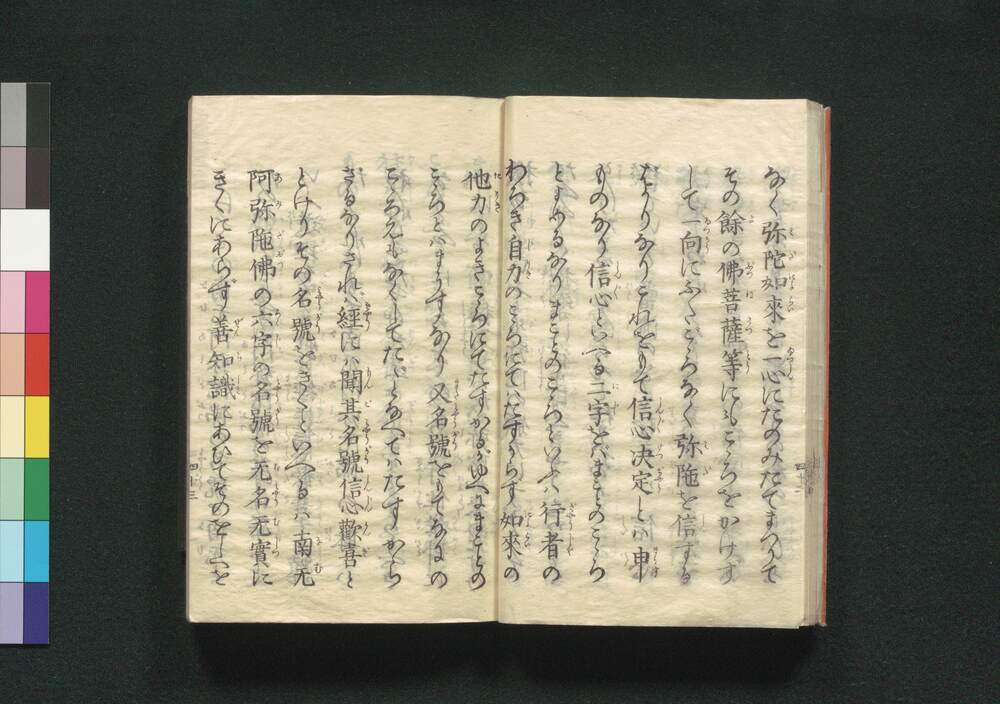 なく弥陀如來を一心にたのみたてまつりて
その餘の佛菩薩等にもこゝろをかけす
して一向にふたこゝろなく弥陁を信する
はかりなりこれをもて信心決定とは申
ものなり信心といへる二字をはまことのこゝろ
とよめるなりまことのこゝろといふは行者の
わろき自力のこゝろにてはたすからす如來の
他力のよきこゝろにてたすかるかゆへにまことの
こゝろとはまうすなり又名號をもてなにの
こゝろえもなくしてたゝとなへてはたすからさ
さるなりされは經には聞其名號信心歡喜と
とけりその名號をきくといへるは南无
阿弥陁佛の六字の名號を无名无實に
きくにあらす善知識にあひてそのをしへを
四十二
四十三